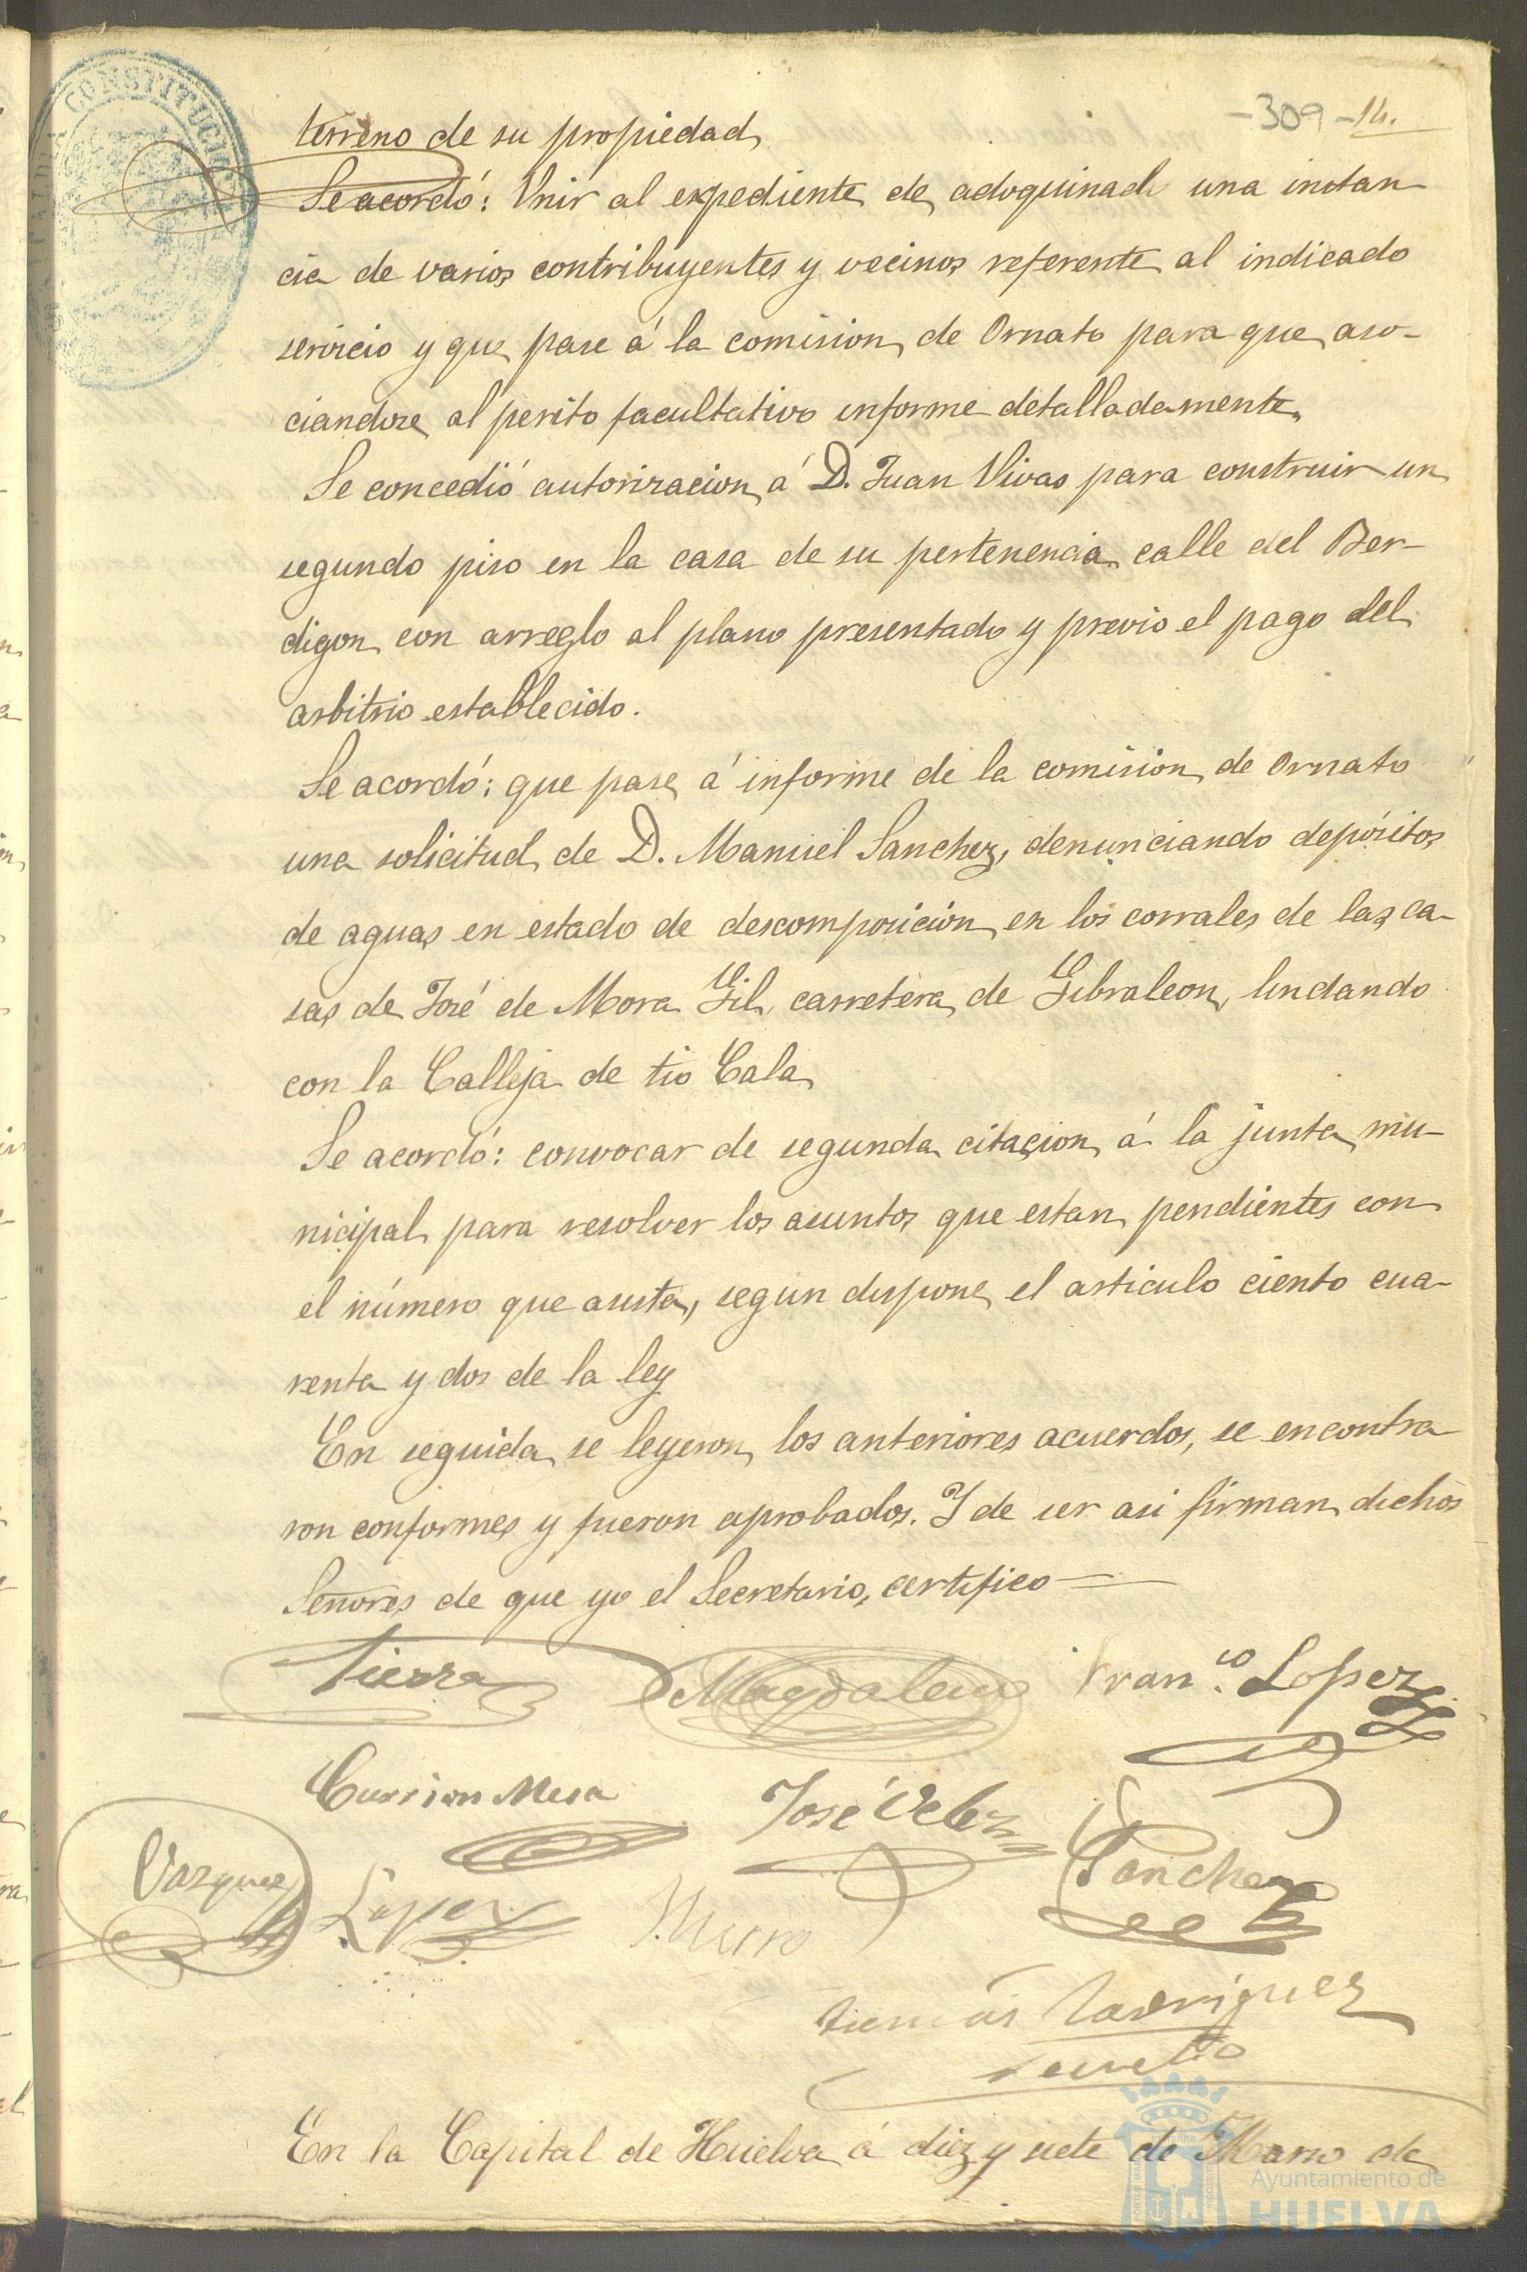 -309-14.
CONSTITUCIO
terreno de su propiedad
Se acordó: Unir al expediente de adoquinado una instan
cia de varios contribuyentes y vecinos referente al indicado
servicio y que pase á la comision de Ornato para que aso-
ciandose al perito facultativo informe detalladamente
Se concedió autorizacion á D. Juan Vivas para construir un
segundo piso en la casa de su pertenencia calle del Ber-
digon con arreglo al plano presentado y previo el pago del
arbitrio establecido.
Se acordó: que pase á informe de la comision de Ornato
una solicitud de D. Manuel Sanchez, denunciando depósitos
de aguas en estado de descomposición en los corrales de las ca-
sas de José de Mora Gil, carretera de Gibraleon, lindando
con la Calleja de tio Cala
Se acordó: convocar de segunda citacion á la junta mu-
nicipal para resolver los asuntos que estan pendientes con
el número que asista, segun dispone el articulo ciento cua-
renta y dos de la ley
En seguida se leyeron los anteriores acuerdos, se encontra
ron conformes y fueron aprobados. Y de ser asi firman dichos
Señores de que yo el Secretario, certifico=
Tierra Magdaleno Fran.co Lopez
Curríon Mesa José Velez Sanchez
Vazquez Lopez
Rodriguez
En la Capital de Huelva á diez y siete de Marzo de
Ayuntamiento de
HUELVA